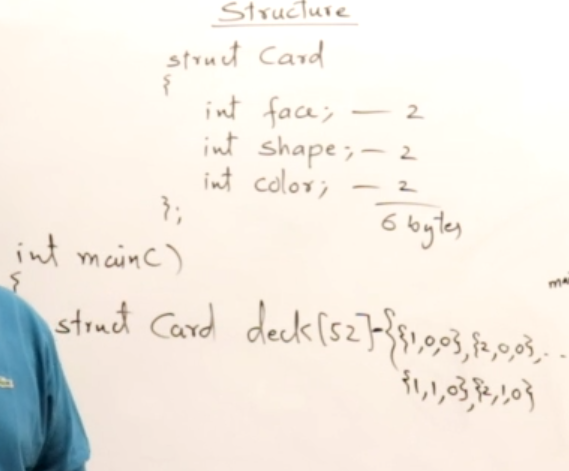 Structure
struct Card
{
int face; — 2
int shape; — 2
int color; — 2
};
6 bytes
int main()
{
struct Card deck[52]={{1,0,0},{2,0,0},...
{1,1,0},{2,1,0}